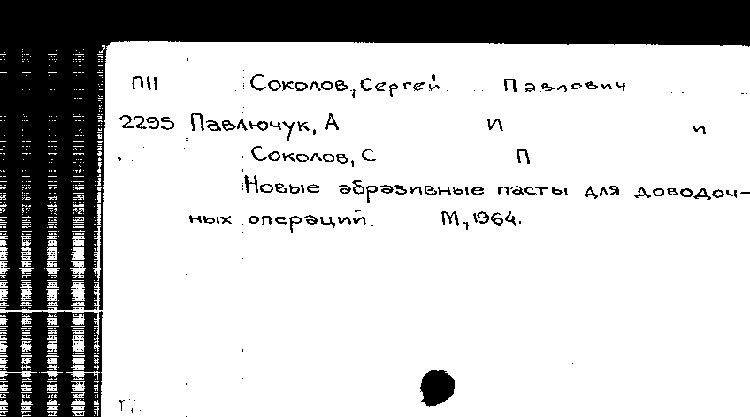 П11 Соколов, Сергей Павлович
2295 Павлючук, А И и
Соколов, С П
Новые абразивные пасты для доводоч-
ных операций. М, 1964.